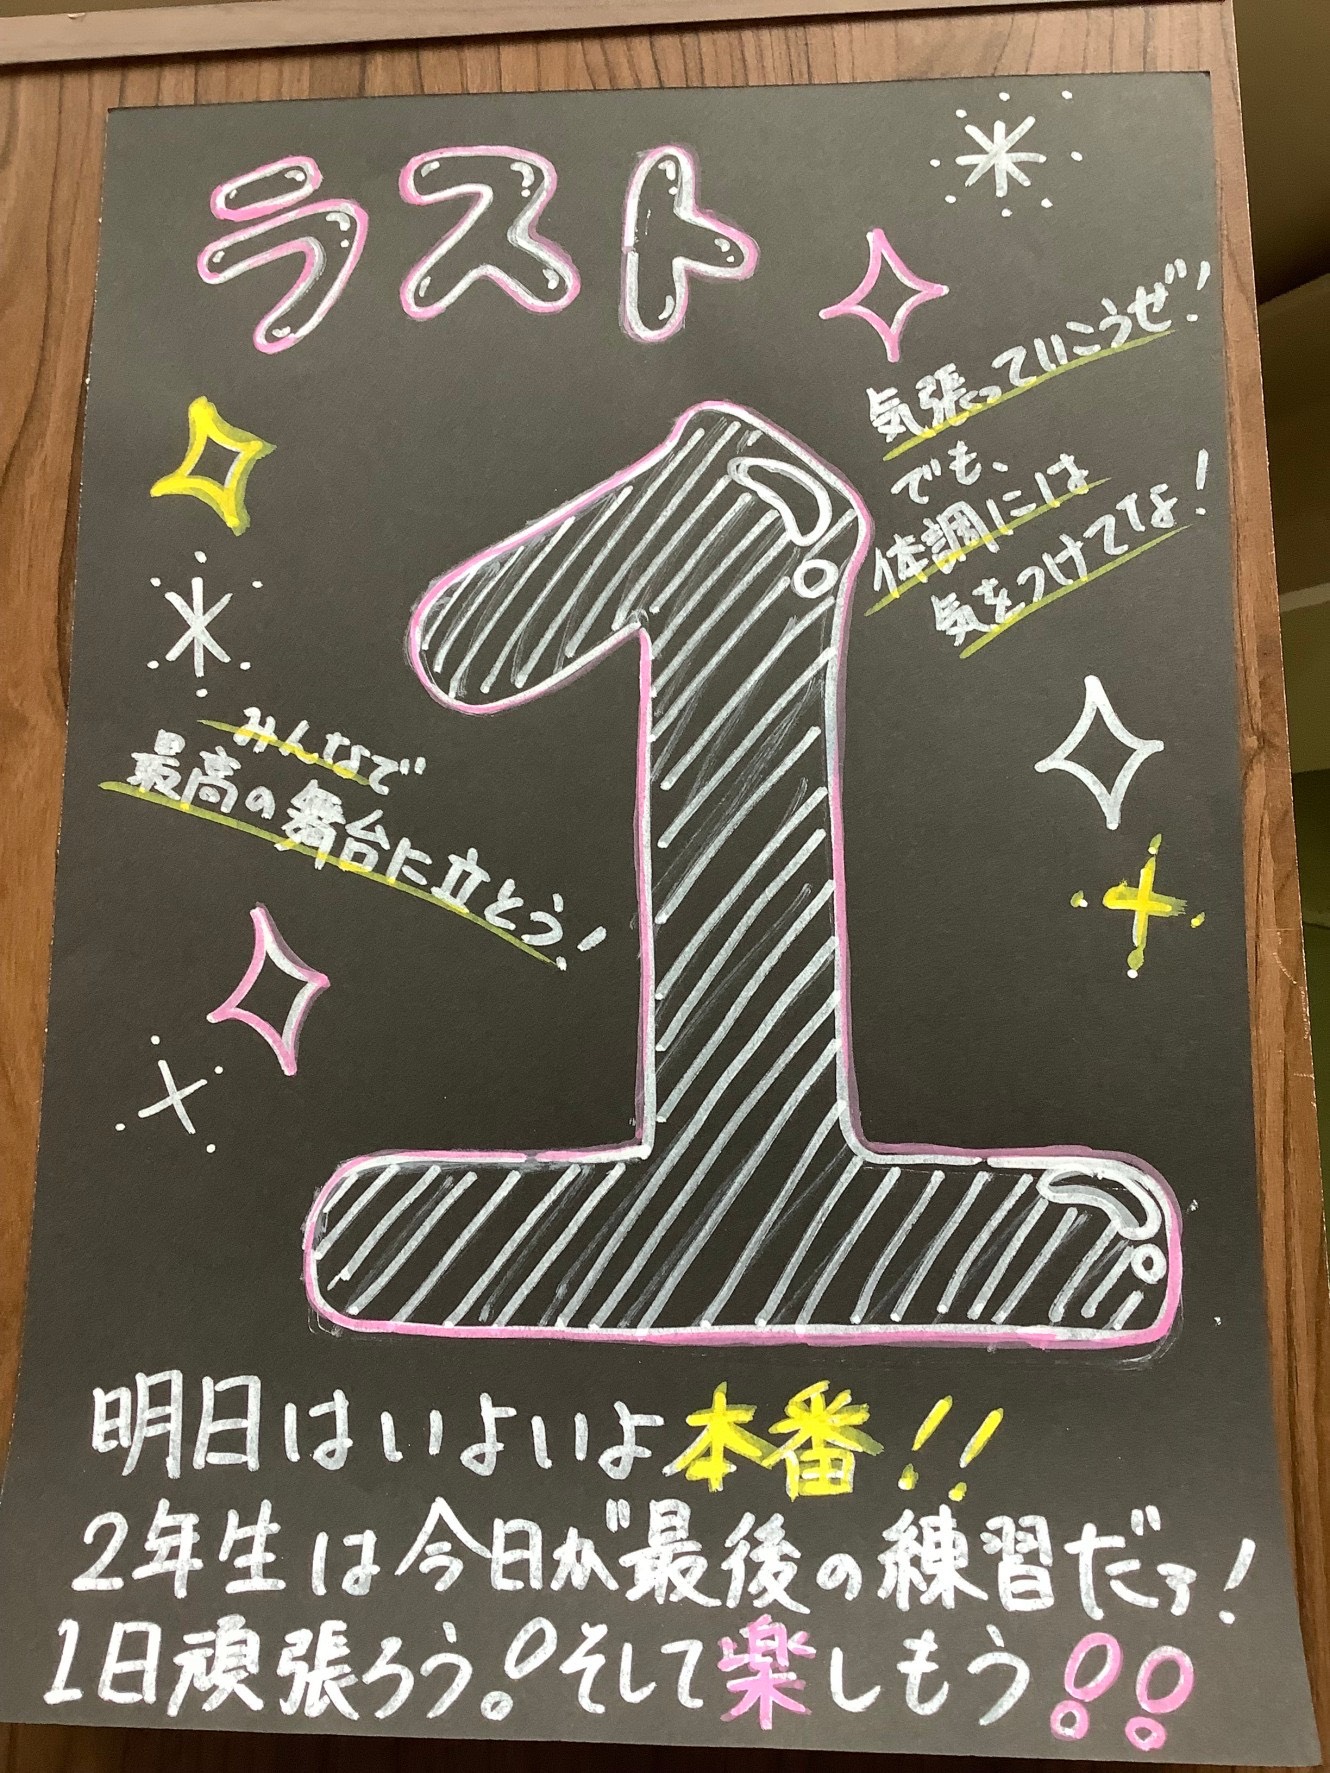 ラスト
気張っていこうぜ!
でも、
体調には
気をつけてな!
1
みんなで
最高の舞台に立とう!
明日はいよいよ本番!!
2年生は今日が最後の練習だァ!
1日頑張ろう!そして楽しもう!!